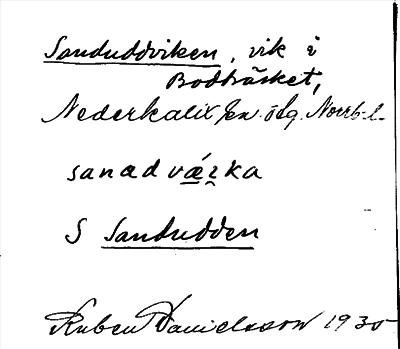 Sanduddviken, vik i
Bodträsket,
Nederkalix sn. ölg. Norrb. l.
sanadvǽɩ̯ka
S Sandudden
Ruben Danielsson 1935